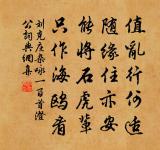 值亂行何適
隨緣住亦安
能將石虎輩
只作海鷗看
劉克庄雜咏一百首澄
公詞典網集